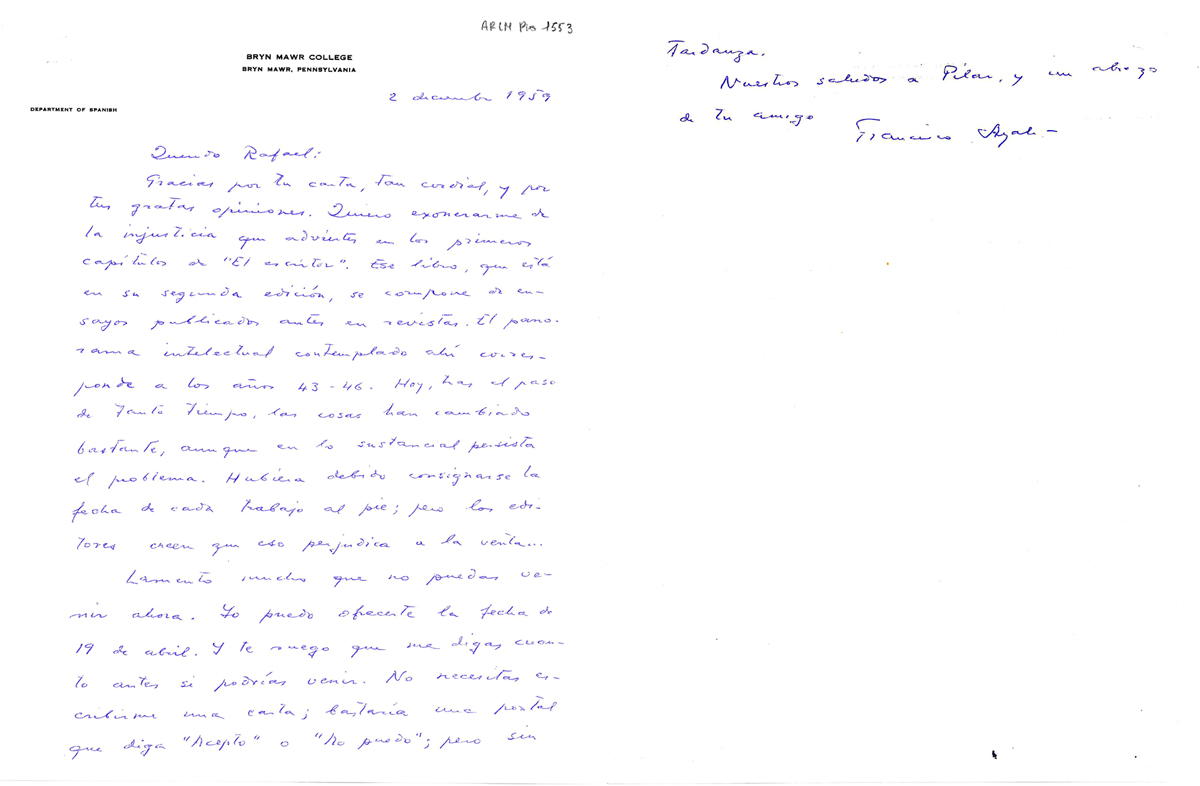 ARLM Pio 1553
BRYN MAWR COLLEGE
BRYN MAWR, PENNSYLVANIA
2 diciembre 1959
DEPARTMENT OF SPANISH
Querido Rafael:
Gracias por tu carta, tan cordial, y por
tus gratas opiniones. Quiero exonerarme de
la injusticia que adviertes en los primeros
capítulos de "El escritor". Ese libro, que está
en su segunda edición, se compone de en-
sayos publicados antes en revistas. El pano-
rama intelectual contemplado ahí corres-
ponde a los años 43-46. Hoy, tras el paso
de tanto tiempo, las cosas han cambiado
bastante, aunque en lo sustancial persista
el problema. Hubiera debido consignarse la
fecha de cada trabajo al pie; pero los edi-
tores creen que eso perjudica a la venta...
Lamento mucho que no puedas ve-
nir ahora. Yo puedo ofrecerte la fecha de
19 de abril. Y te ruego que me digas cuan-
to antes si podrías venir. No necesitas es-
cribirme una carta; bastaría una postal
que diga "Acepto" o "No puedo"; pero sin
tardanza.
Nuestros saludos a Pilar, y un abrazo
de tu amigo
Francisco Ayala